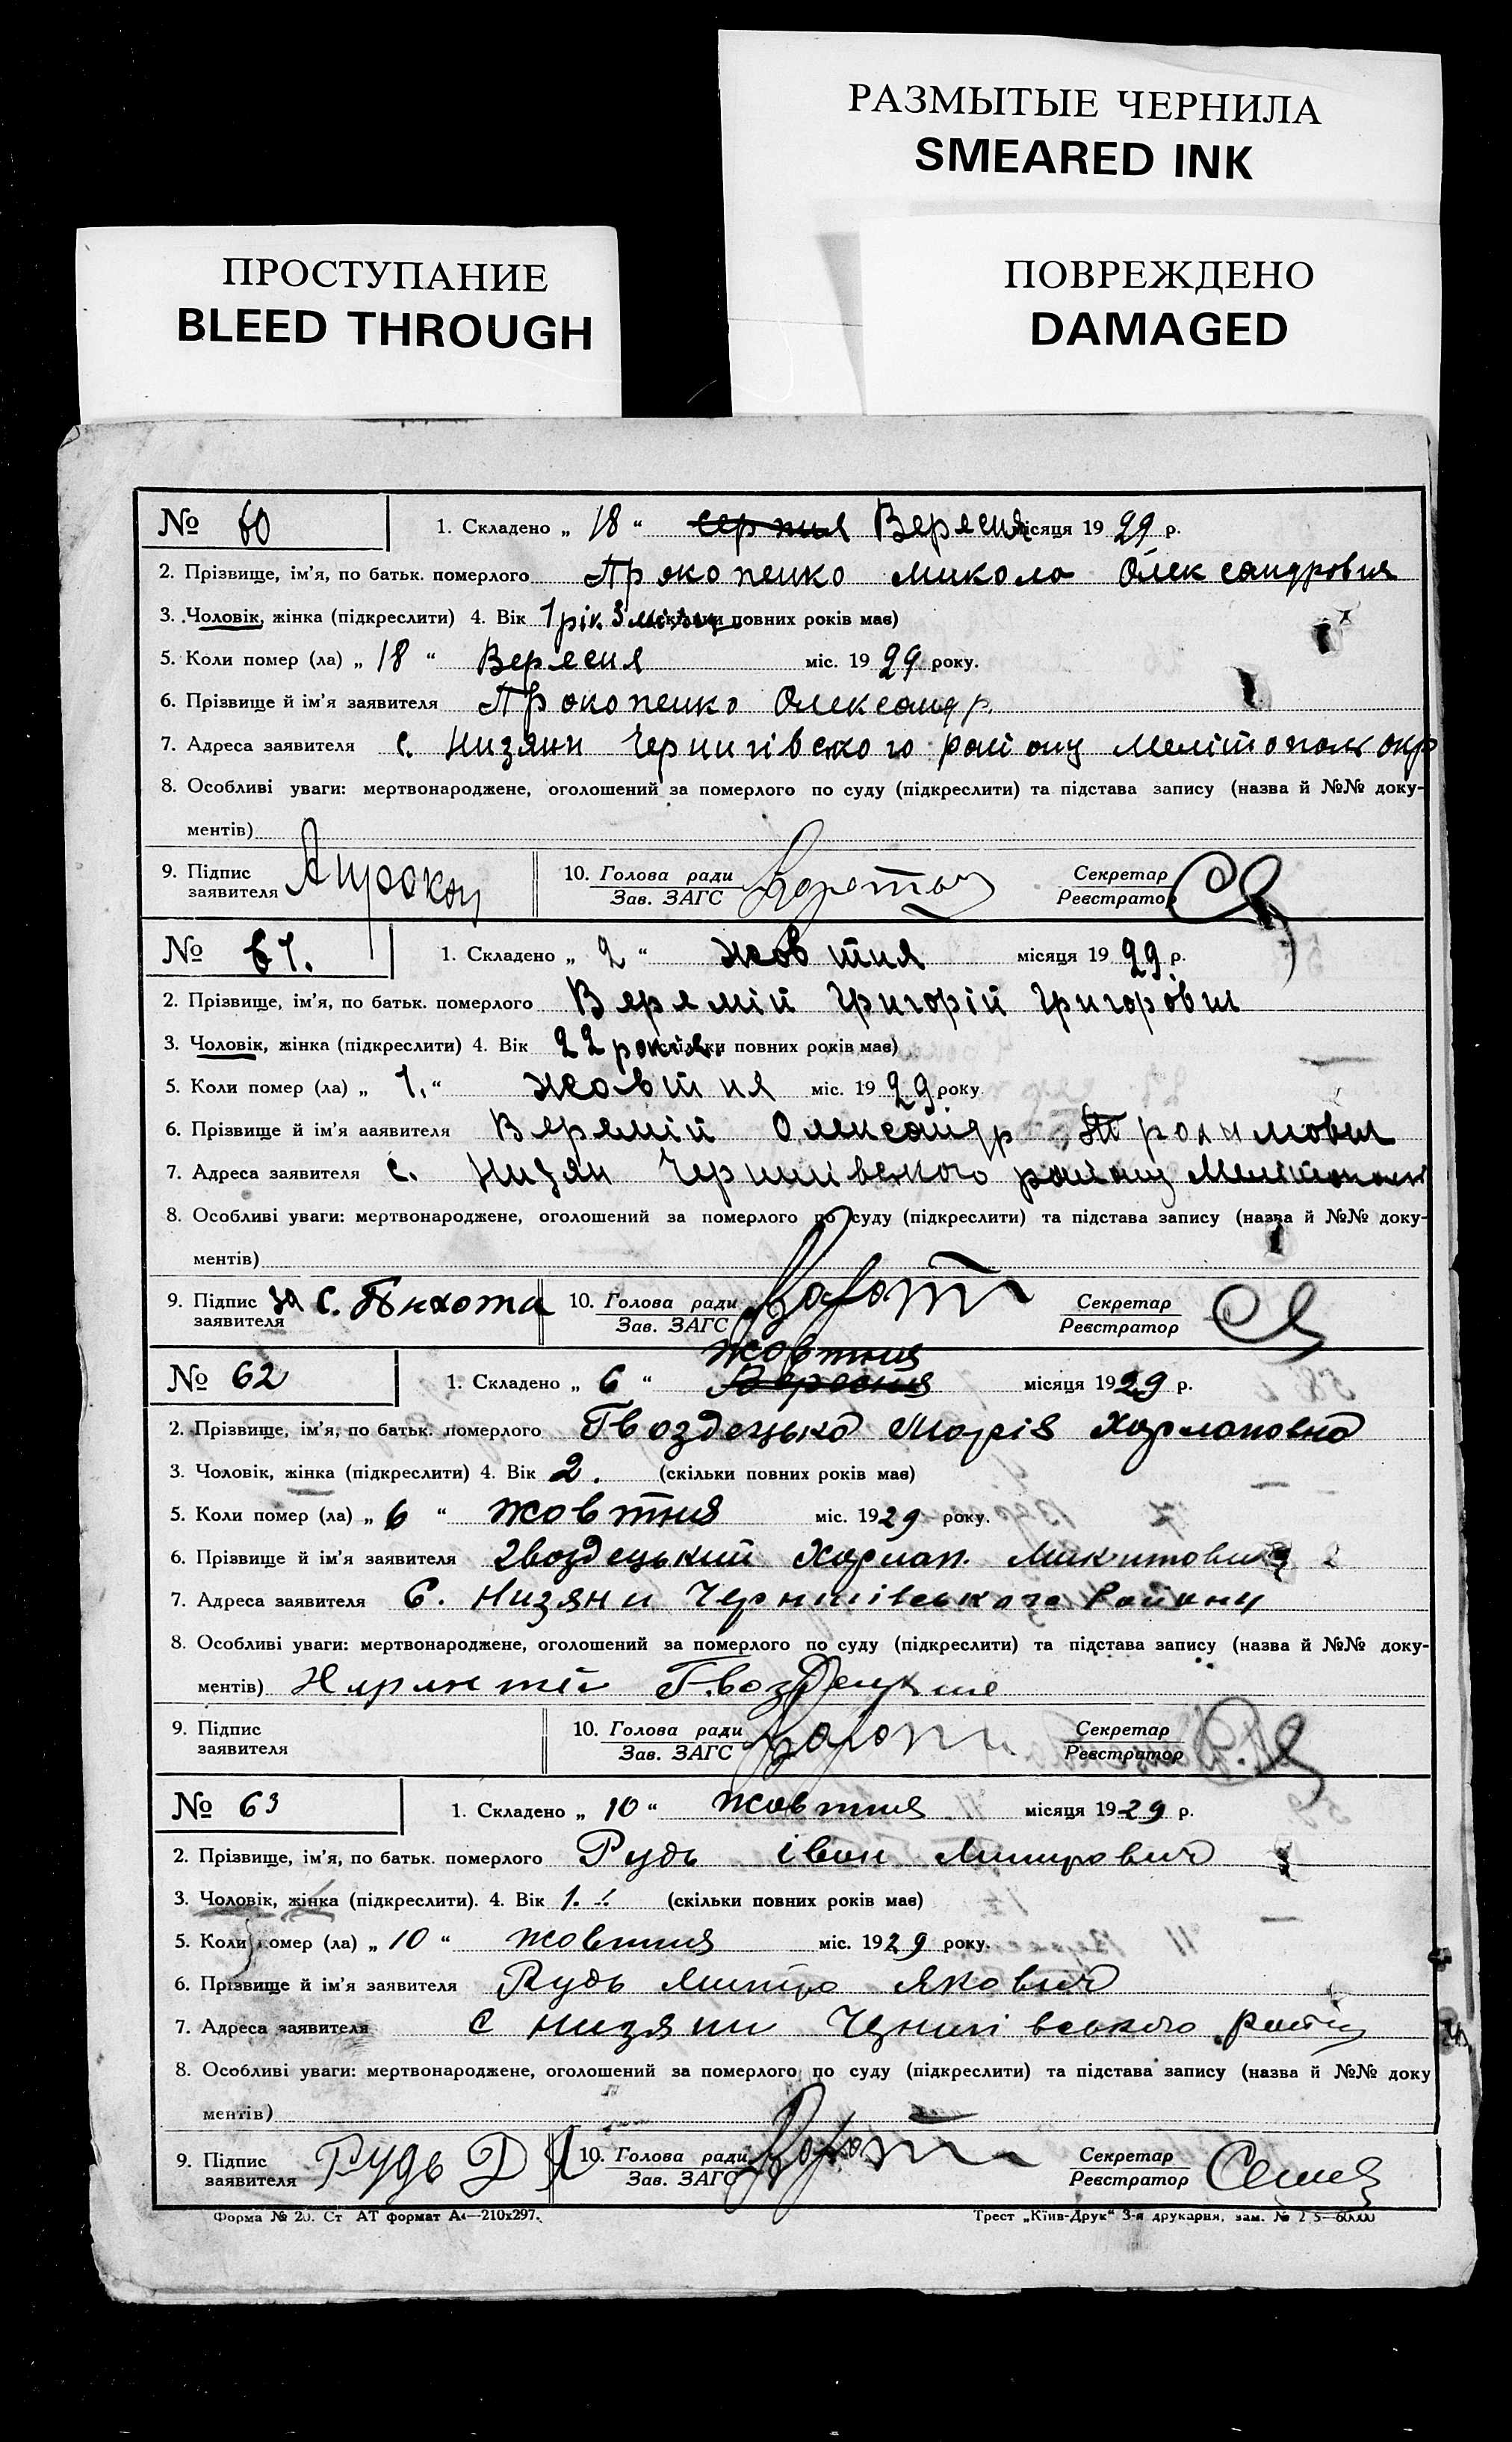 РАЗМЫТЫЕ ЧЕРНИЛА
SMEARED INK
ПРОСТУПАНИЕ
BLEED THROUGH
ПОВРЕЖДЕНО
DAMAGED
№ 60 1. Складено „ 18 “ серпня Вересня місяця 1929 р.
2. Прізвище, ім’я, по батьк. померлого Прокопенко Микола Олександрович
3. Чоловік, жінка (підкреслити) 4. Вік 1 рік 3 місяц (скільки повних років має)
5. Коли помер (ла) „ 18 “ Вересня міс. 1929 року.
6. Прізвище й ім’я заявителя Прокопенко Олександр.
7. Адреса заявителя с. Низяни Чернигівского району Мелітополь окр
8. Особливі уваги: мертвонароджене, оголошений за померлого по суду (підкреслити) та підстава запису (назва й №№ доку-
ментів)
9. Підпис заявителя 10. Голова ради Зав. ЗАГС Секретар Реєстратор
№ 61. 1. Складено „ 2 “ жовтня місяця 1929 р.
2. Прізвище, ім’я, по батьк. померлого Веремій Григорій Григорович
3. Чоловік, жінка (підкреслити) 4. Вік 22 років. (скільки повних років має)
5. Коли помер (ла) „ 1. “ жовтня міс. 1929 року
6. Прізвище й ім’я аявителя Веремій Олександр
7. Адреса заявителя с. Низян Чернигівского району Мелітополь
8. Особливі уваги: мертвонароджене, оголошений за померлого по суду (підкреслити) та підстава запису (назва й №№ доку-
ментів)
9. Підпис заявителя за С. Пихота 10. Голова ради Зав. ЗАГС Секретар Реєстратор
жовтня
№ 62 1. Складено „ 6 “ Вересня місяця 1929 р.
2. Прізвище, ім’я, по батьк. померлого Гвоздецька Марія Харлаповна
3. Чоловік, жінка (підкреслити) 4. Вік 2. (скільки повних років має)
5. Коли помер (ла) „ 6 “ жовтня міс. 1929 року.
6. Прізвище й ім’я заявителя Гвоздецький Харлап. Микитович
7. Адреса заявителя С. Низяни Чернигівського Району
8. Особливі уваги: мертвонароджене, оголошений за померлого по суду (підкреслити) та підстава запису (назва й №№ доку-
ментів)
9. Підпис заявителя 10. Голова ради Зав. ЗАГС Секретар Реєстратор
№ 63 1. Складено „ 10 “ жовтня місяця 1929 р.
2. Прізвище, ім’я, по батьк. померлого Рудь іван Дмитрович
3. Чоловік, жінка (підкреслити). 4. Вік 1. (скільки повних років має)
5. Коли помер (ла) „ 10 “ жовтня міс. 1929 року.
6. Прізвище й ім’я заявителя Рудь Дмитро Якович
7. Адреса заявителя с Низяни
8. Особливі уваги: мертвонароджене, оголошений за померлого по суду (підкреслити) та підстава запису (назва й №№ доку
ментів)
9. Підпис заявителя Рудь Д Я 10. Голова ради Зав. ЗАГС Секретар Реєстратор
Форма № 20. Ст АТ формат А4—210х297. Трест „Київ-Друк“ 3-я друкарня, зам. №